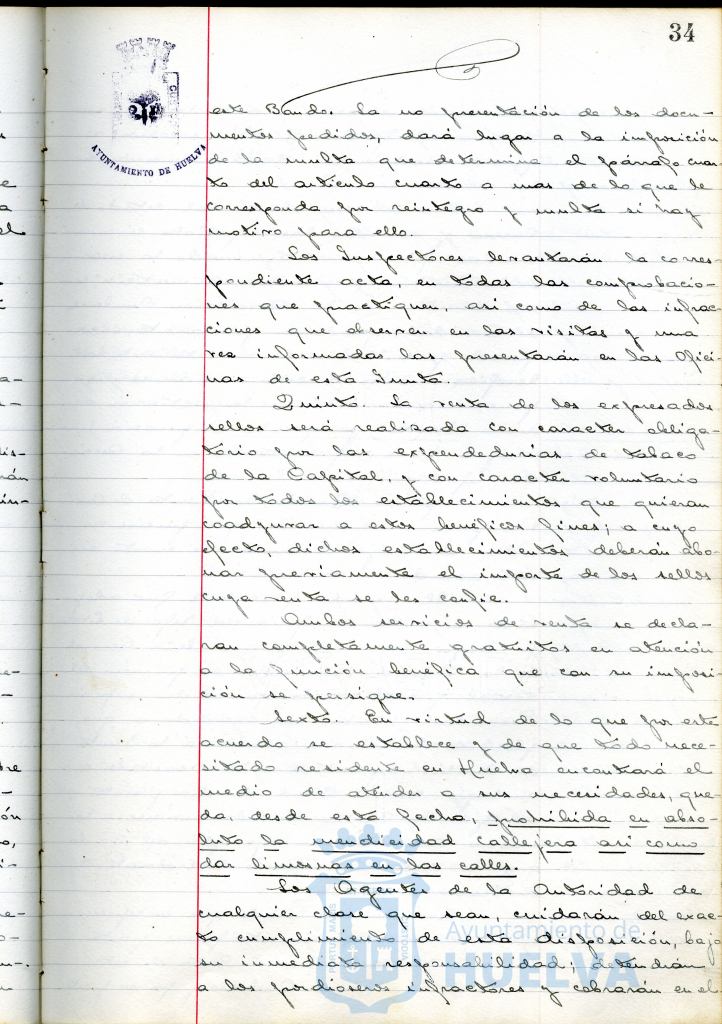 34
AYUNTAMIENTO DE HUELVA
este Bando. La no presentación de los docu-
mentos pedidos, dará lugar a la imposición
de la multa que determina el párrafo cuar-
to del artículo cuarto a mas de lo que le
corresponda por reintegro y multa si hay
motivo para ello.
Los Inspectores levantarán la corres-
pondiente acta, en todas las comprobacio-
nes que practiquen, asi como de las infrac-
ciones que observen en las visitas y una
vez informadas las presentarán en las Ofici-
nas de esta Junta.
Quinto. La venta de los expresados
sellos será realizada con caracter obliga-
torio por las expendedurias de tabaco
de la Capital, y con caracter voluntario
por todos los establecimientos que quieran
coadyuvar a estos benéficos fines; a cuyo
efecto, dichos establecimientos deberán abo-
nar previamente el importe de los sellos
cuya venta se les confie.
Ambos servicios de venta se decla-
ran completamente gratuitos en atención
a la función benéfica que con su imposi-
ción se persigue.
Sexto. En virtud de lo que por este
acuerdo se establece y de que todo nece-
sitado residente en Huelva encontrará el
medio de atender a sus necesidades, que-
da, desde esta fecha, prohibida en abso-
luto la mendicidad callejera asi como
dar limosnas en las calles.
Los Agentes de la Autoridad de
cualquier clase que sean, cuidarán del exac-
to cumplimiento de esta disposición, bajo
su inmediata responsabilidad; detendrán
a los pordioseros infractores y cobrarán en el
Ayuntamiento de
HUELVA